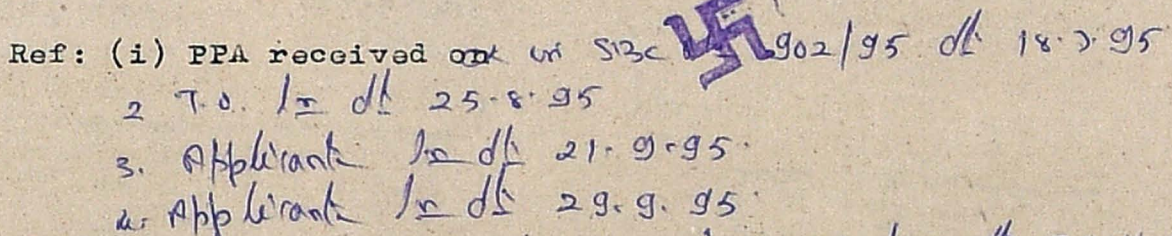 Ref: (i) PPA received on in SBC 902/95 dt 18.7.95
2 T.O. lr dt 25.8.95
3. Applicant lr dt 21.9.95.
4. Applicant lr dt 29.9.95